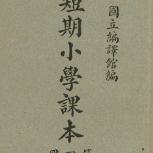 國立編譯館編
短期小學課本
第